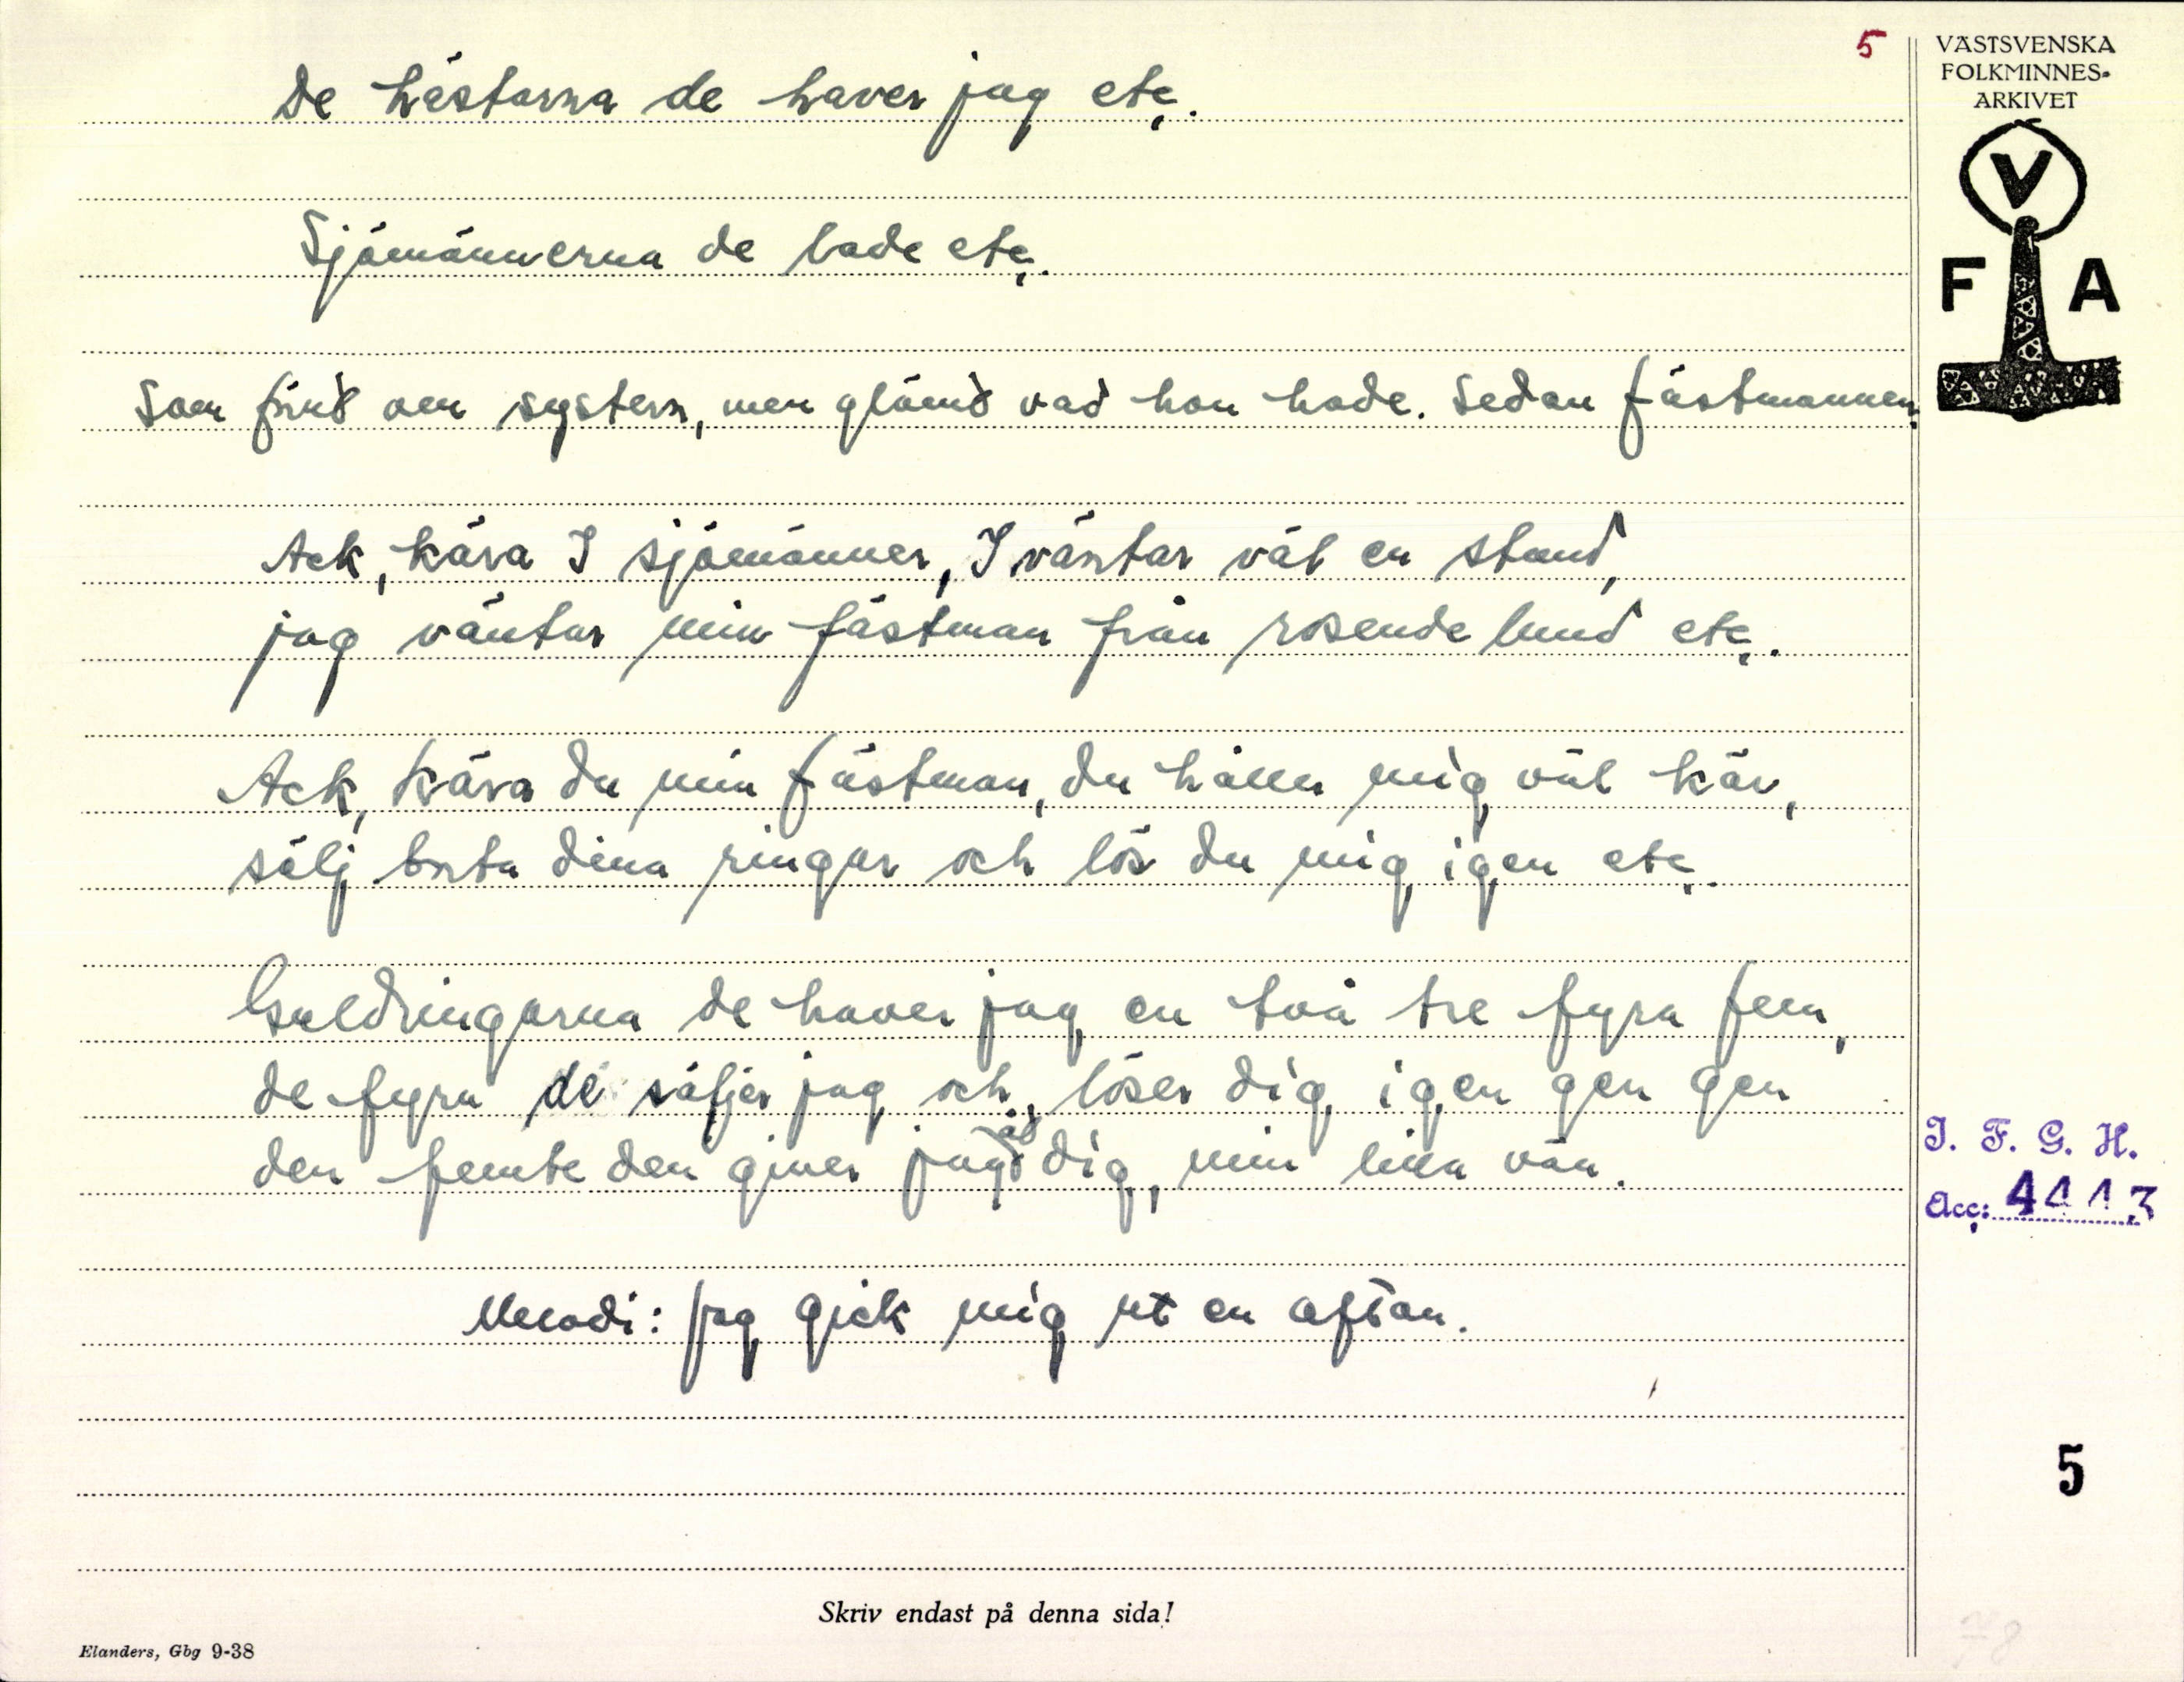 5
VÄSTSVENSKA
FOLKMINNES-
ARKIVET
V
F A
De hästarna de haver jag etc.
Sjömännerna de lade etc.
Som förut om systern, men glömt vad hon hade. Sedan fästmannen.
Ack, kära I sjömänner, I väntar väl en stund,
jag väntar min fästman från rosende lund etc.
Ack, kära du min fästman, du håller mig väl kär,
sälj borta dina ringar och lös du mig igen etc.
Guldringarna de haver jag en två tre fyra fem,
de fyra de säljer jag och löser dig igen gen gen
den femte den giver jag åt dig, min lilla vän.
Melodi: Jag gick mig ut en afton.
I. F. G. H.
Acc: 4443
5
Skriv endast på denna sida!
Elanders, Gbg 9-38